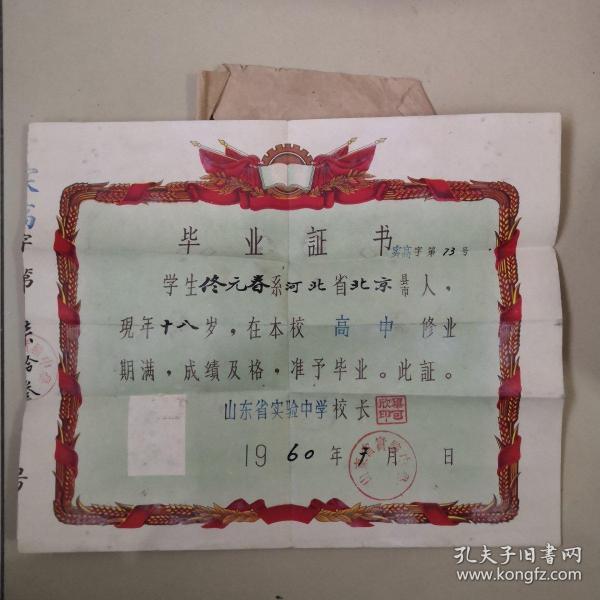 毕业証书
实高字第73号
学生佟元春系河北省北京县市人，
現年十八岁，在本校高中修业
期满，成績及格，准予毕业。此証。
山东省实验中学校长
1960年7月 日
实高字第柒拾叁号
孔夫子旧书网
www.kongfz.com